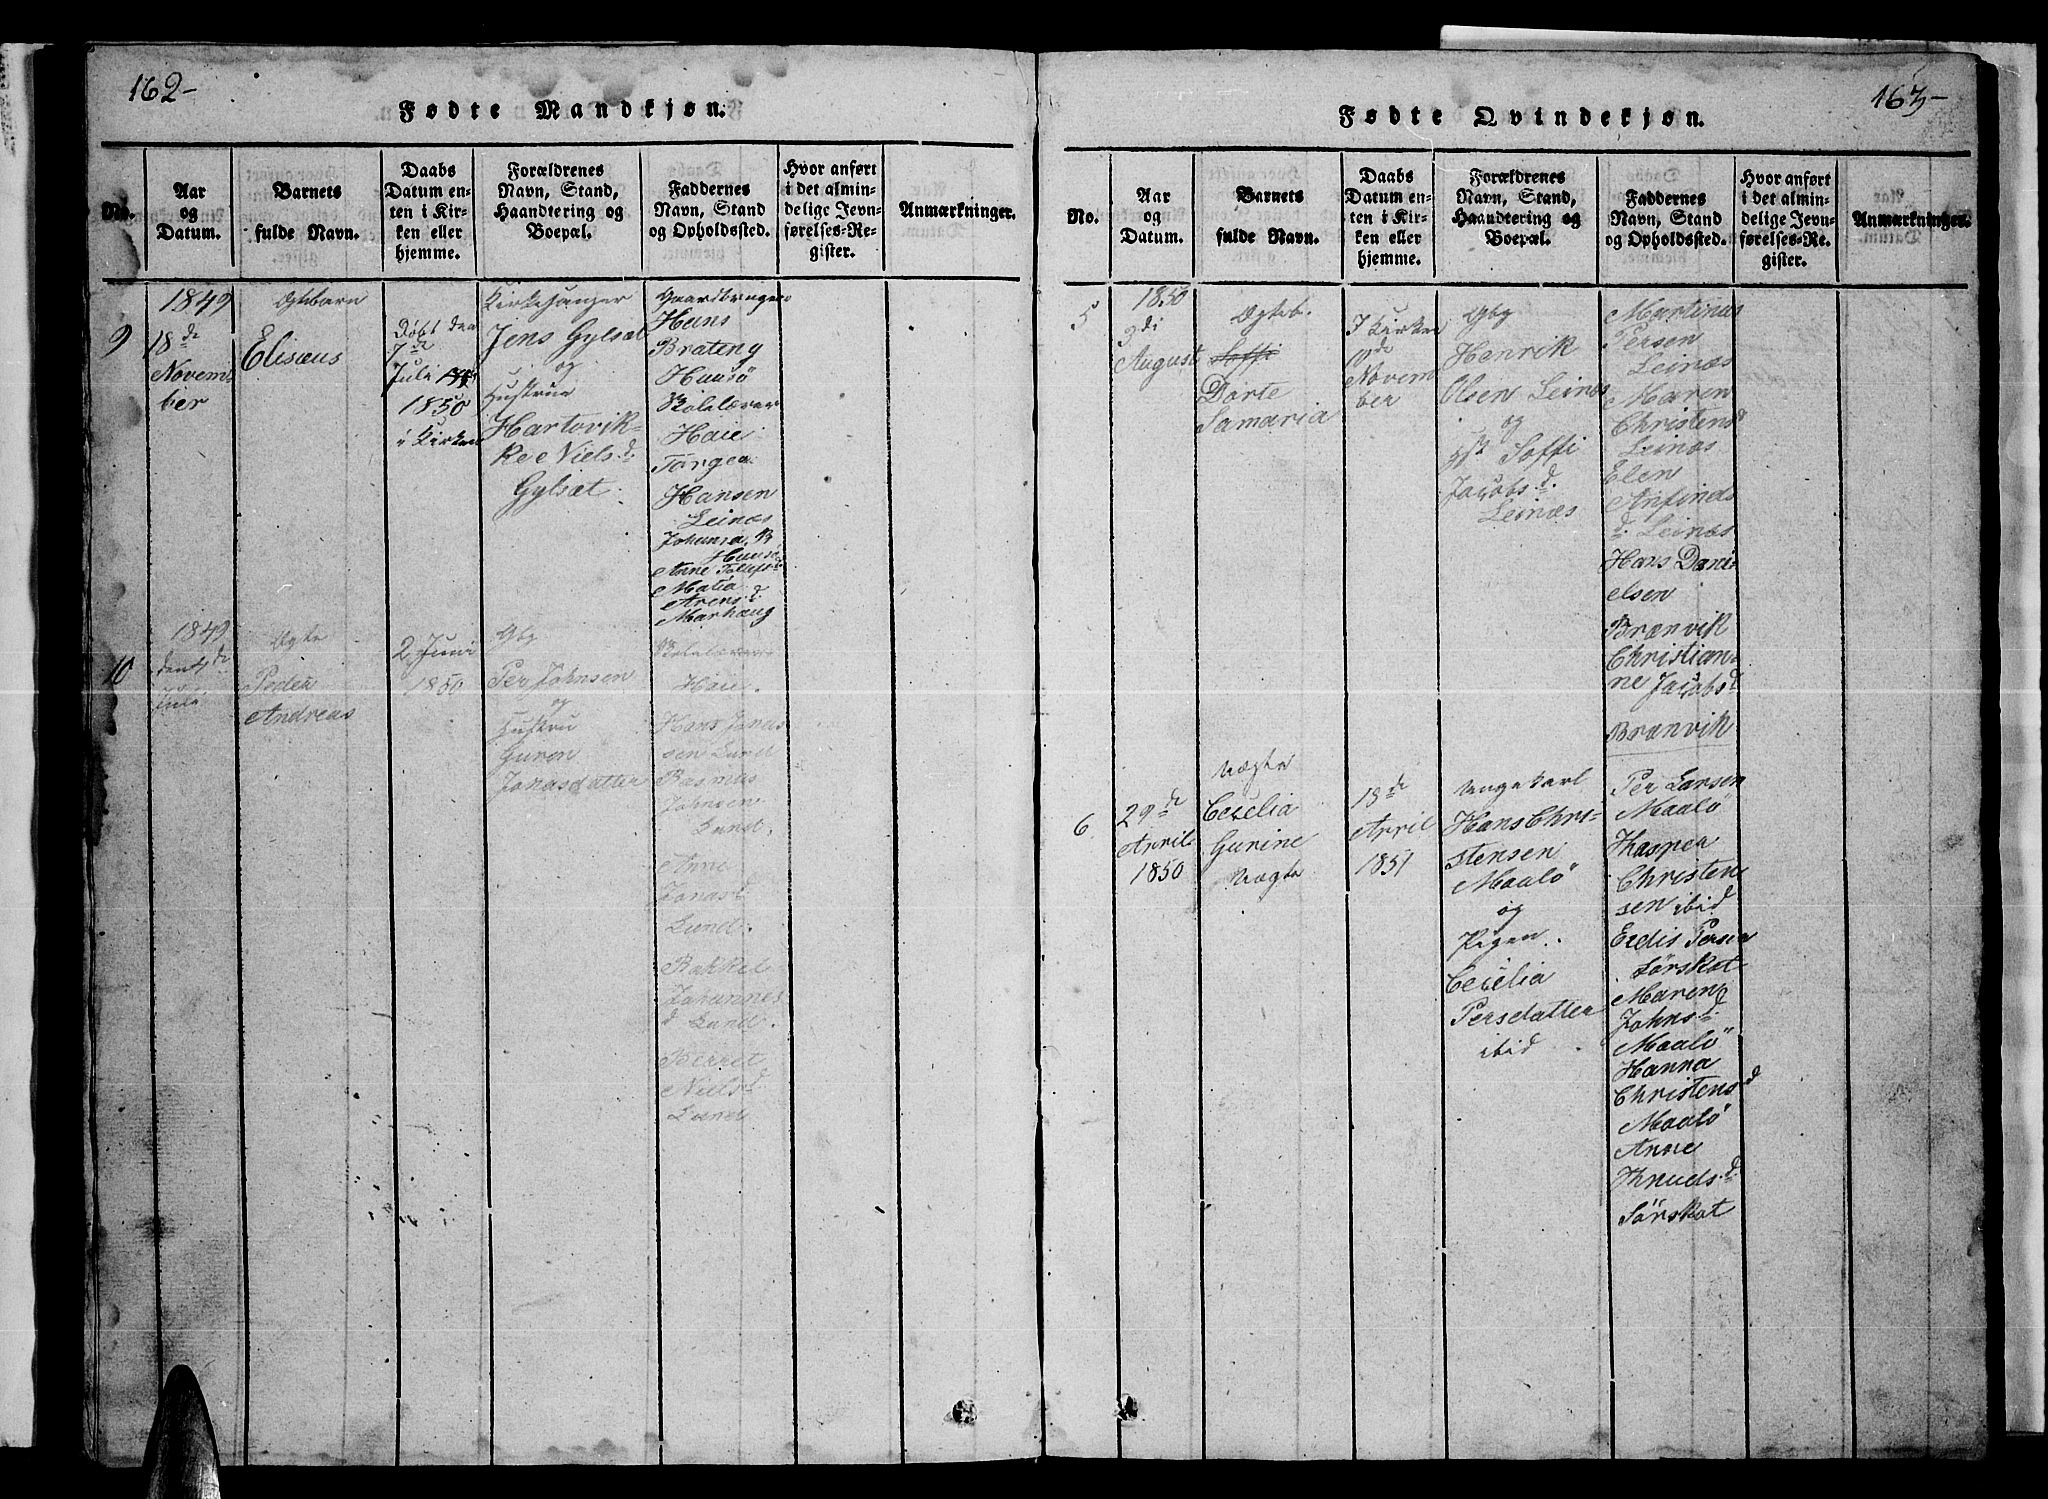 162-
Fødte Mandkjøn.
No.
Aar
og
Datum.
Barnets
fulde Navn.
Daabs
Datum en-
ten i Kir-
ken eller
hjemme.
Forældrenes
Navn, Stand,
Haandtering og
Boepæl.
Faddernes
Navn, Stand
og Opholdssted.
Hvor anført
i det almin-
delige Jevn-
førelses-Re-
gister.
Anmærkninger.
9
1849
18de
Novem-
ber
Ægtebarn
Elisæus
Døbt den
7de
Juli
1850
i Kirken
Kirkesanger
Jens Gylsæt
og
Hustrue
Hartovik-
Ke Niels d:
Gylsæt.
Gaardbruger
Hans
Brateng
Hausø
Skolelærer
Haie
Jørgen
Hansen
Leinæs
Johanna B
Haus
Anne Tollefs
Matia
Arens d:
Marhaug
10
1849
den 4de
Juli
Ægte
Peder
Andreas
2 Juni
1850
Gbg
Per Johnsen
og
Hustru
Guron
Jonasdatter
Skolelærer
Haie.
Hans Jonas
sen Lund
Rasmus
Johnsen
Lund.
Anne
Jonasd
Lund.
Rakkel
Johannes
d Lund.
Berret
Niels d
Lund
163-
Fødte Qvindekjøn.
No.
Aar
og
Datum.
Barnets
fulde Navn.
Daabs
Datum en-
ten i Kir-
ken eller
hjemme.
Forældrenes
Navn, Stand,
Haandtering og
Boepæl.
Faddernes
Navn, Stand
og Opholdssted.
Hvor anført
i det almin-
delige Jevn-
førelses-Re-
gister.
Anmærkninger.
5
1850
9di
August
Ægteb.
Soffi
Dorte
Samaria
I Kirken
10de
Novem
ber
Gbg
Henrik
Olsen Leinæs
og
Hst Soffi
Jacobs d.
Leinæs
Martinus
Persen
Leinæs
Maren
Christens d
Leinæs
Elen
Anfinds
d. Leinæs
Hans Dani-
elsen
Brænvik
Christian-
ne Jacobs d
Brænvik
6
29de
April
1850
Uægte
Cecelia
Gurine
Uægte
18de
April
1851
Ungekarl
Hans Chri-
stensen
Maalø
og
Pigen
Cecelia
Persdatter
ibid
Per Larsen
Maalø
Kasper
Christen
sen ibid
Erdis Persen
Sørskot
Maren
Johns d
Maalø
Hanna
Christens d
Maalø
Anne
Knuds d
Sørskot